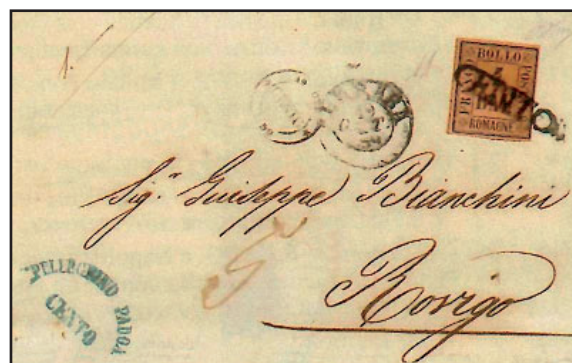 1.
FRANCO BOLLO POSTALE ROMAGNE
CENTO
FERRARA
Sig.r Giuseppe Bianchini
5
Rovigo
PELLEGRINO PADOA
CENTO